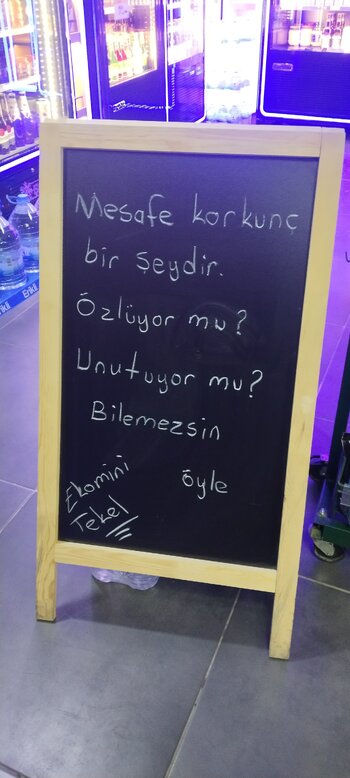 Mesafe korkunç
bir şeydir.
Özlüyor mu?
Unutuyor mu?
Bilemezsin
öyle
Ekomini
Tekel
Erikli